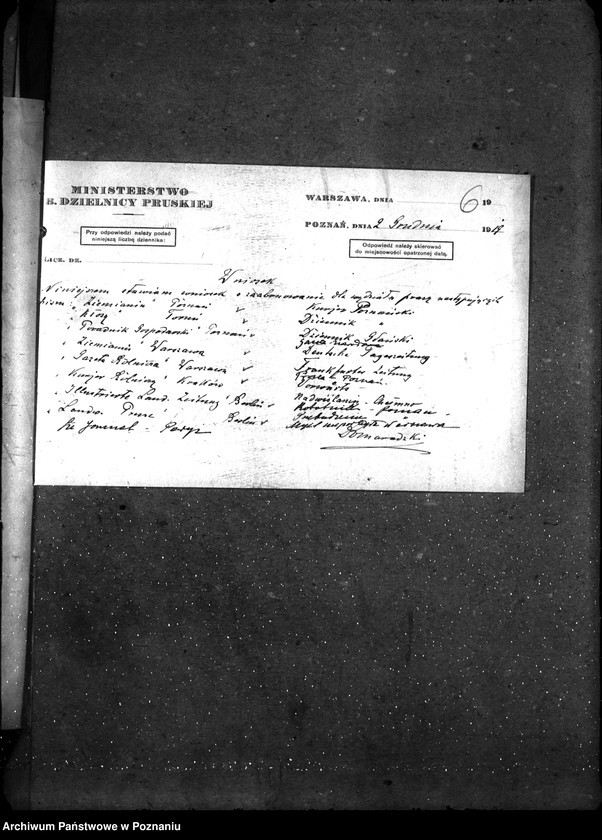 MINISTERSTWO
B. DZIELNICY PRUSKIEJ
WARSZAWA, DNIA 19
6
POZNAŃ, DNIA 2 Grudnia 1919
Przy odpowiedzi należy podać
niniejszą liczbę dziennika:
Odpowiedź należy skierować
do miejscowości opatrzonej datą.
LICZ. DZ.
Wniosek
Niniejszem stawiam wniosek o zaabonowanie dla wydziału prasy następujących
pism: „Ziemianin" Poznań
„Kłosy" Toruń
„Poradnik Gospodarski" Poznań
„Ziemianin" Warszawa
„Gazeta Rolnicza" Warszawa
„Kurjer Rolniczy" Kraków
„Illustrierte Land. Zeitung" Berlin
„Landw. Presse" Berlin
Le Journal - Paryż
Kurjer Poznański
Dziennik "
Dziennik Gdański
Deutsche Tageszeitung
Frankfurter Zeitung
Vorwärts
Nadwiślanin - Chełmno
Robotnik - Poznań -
Przebudzenie
Myśl Warszawa